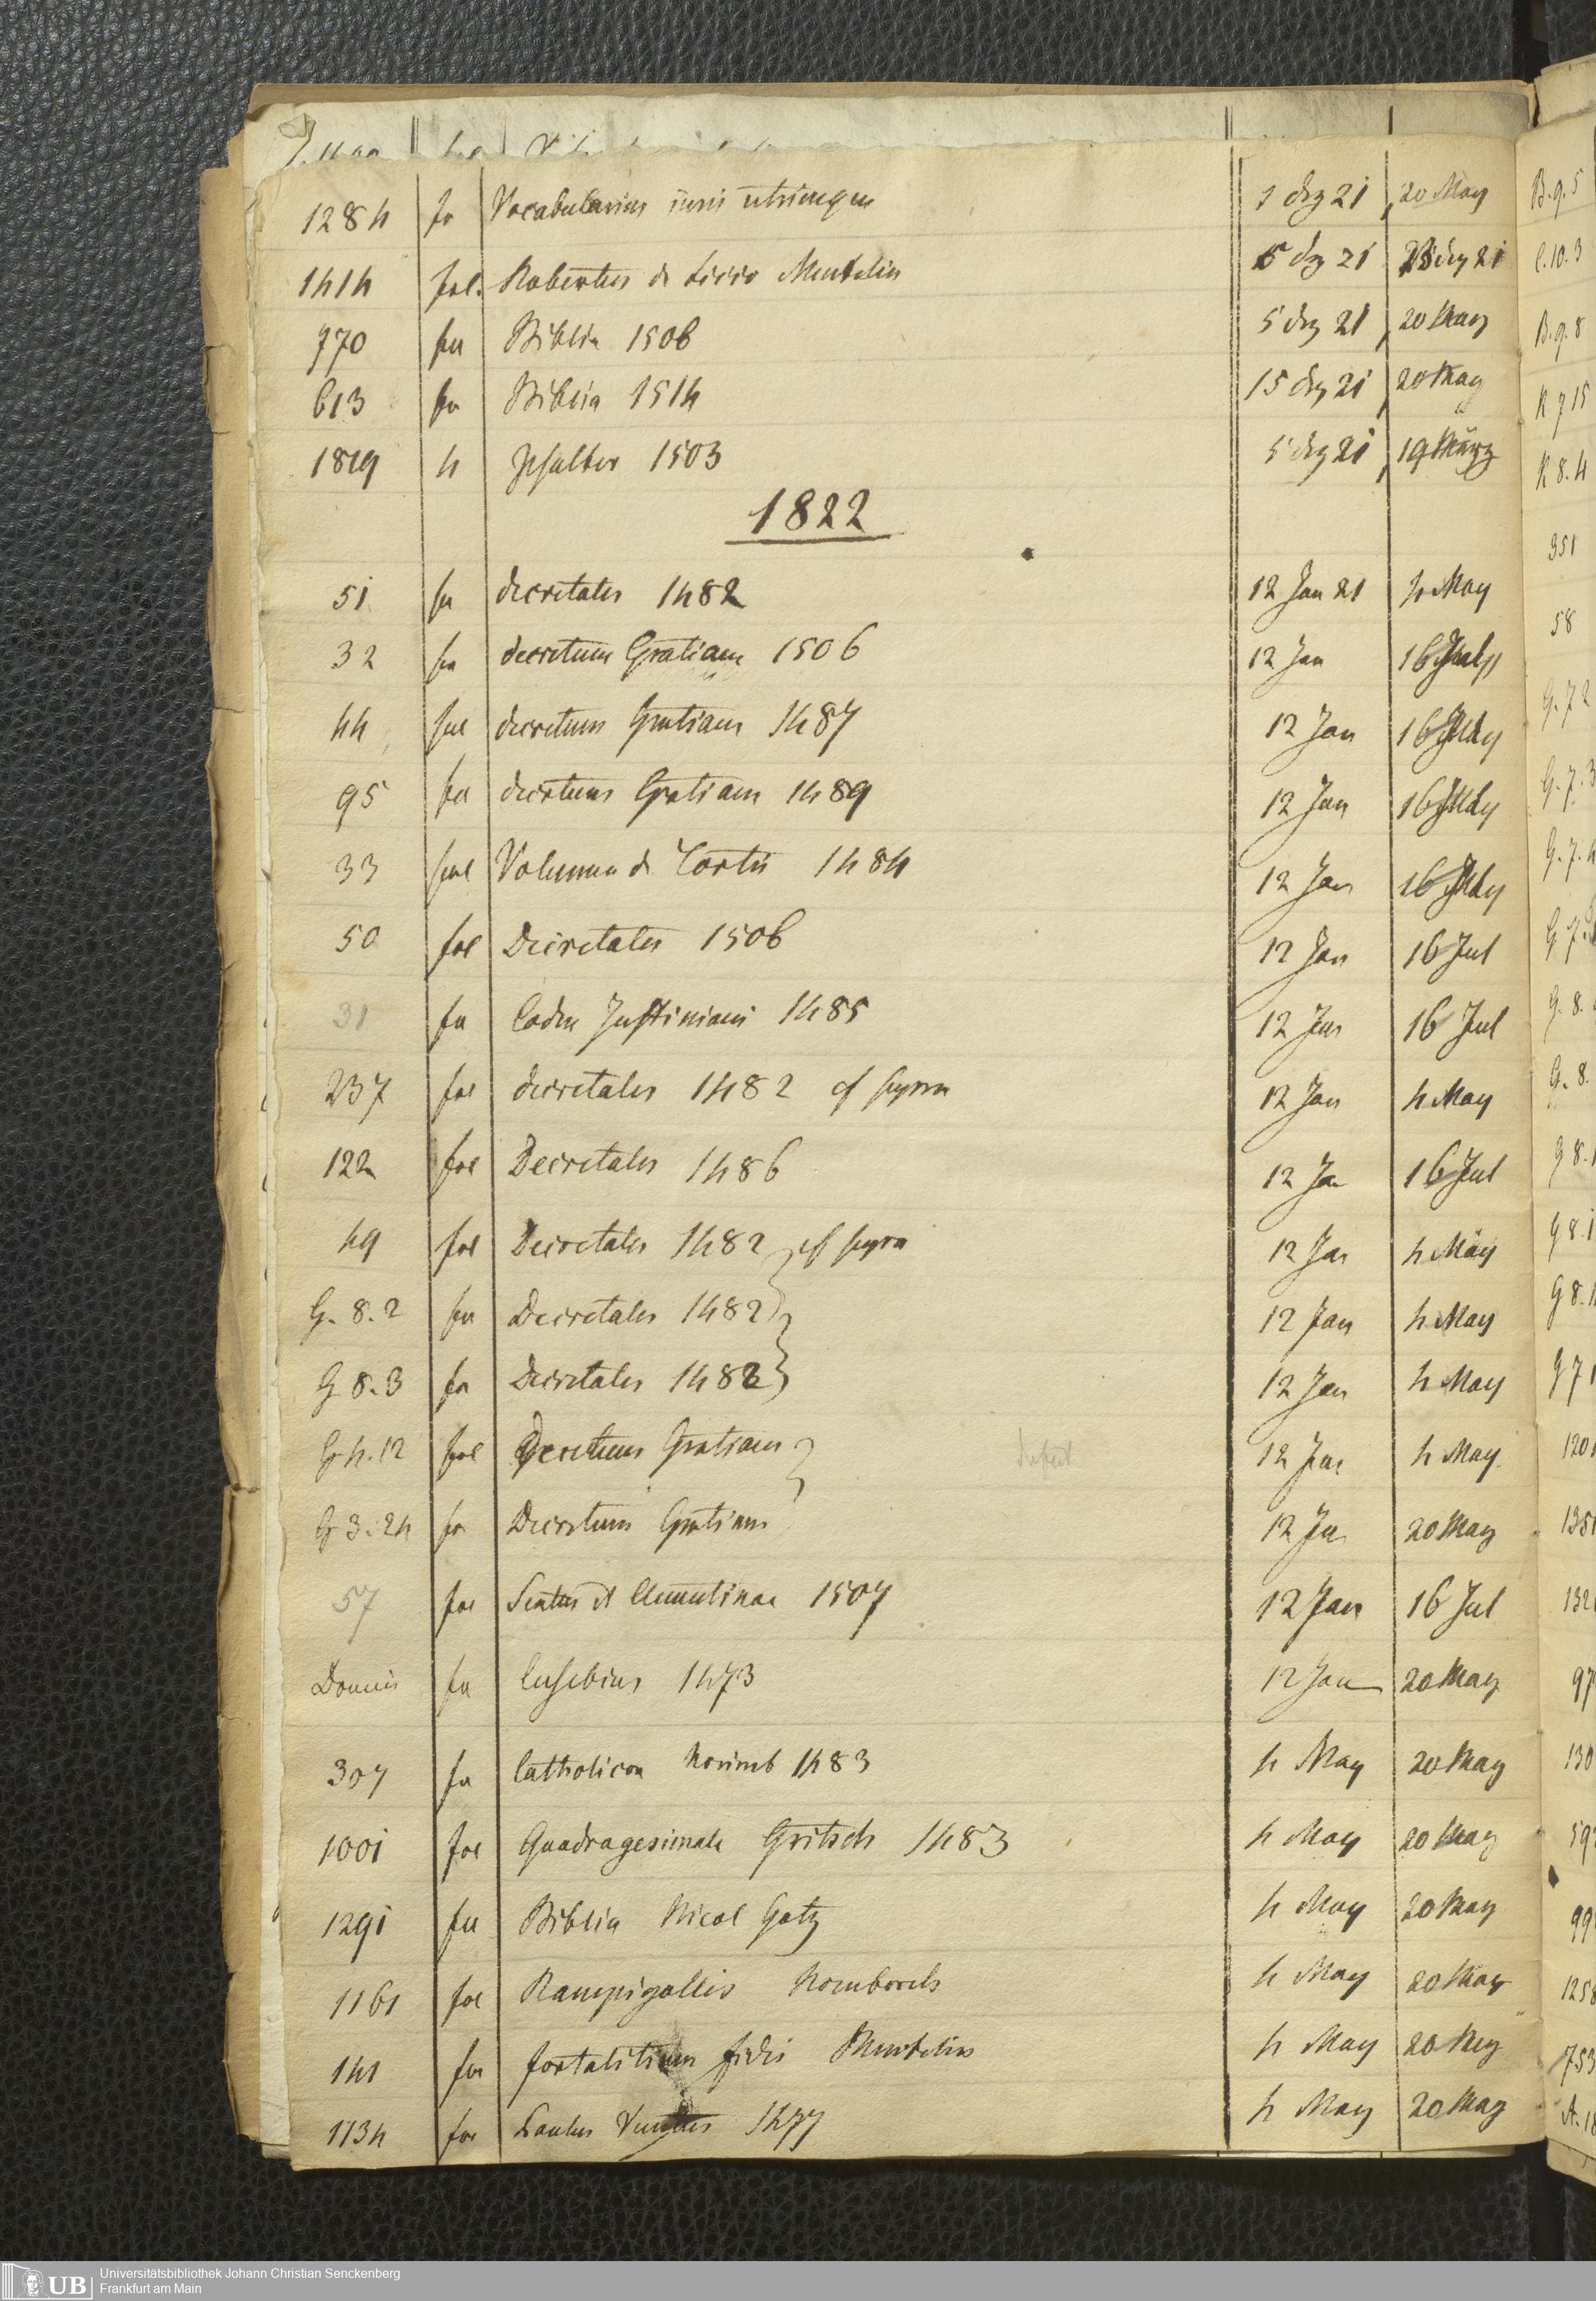 1284 fo Vocabularius iuris utriusque 1 dez 21 20 May
1414 fol. Robertus de Licio Mentelin 5 dez 21 28 dez 21
770 fol Biblia 1506 5 dez 21 20 May
613 fo Biblia 1514 15 dez 21 20 May
1819 4 Psalter 1503 5 dez 21 19 März
1822
51 fol decretales 1482 12 Jan 21 4 May
32 fol decretum Gratiani 1506 12 Jan 16 July
44 fol decretum Gratiani 1487 12 Jan 16 July
95 fol decretum Gratiani 1489 12 Jan 16 July
33 fol Volumen de Tortis 1484 12 Jan 16 July
50 fol Decretales 1506 12 Jan 16 Jul
31 fol Codex Justiniani 1485 12 Jan 16 Jul
237 fol decretales 1482 cf supra 12 Jan 4 May
122 fol Decretales 1486 12 Ja 16 Jul
49 fol Decretales 1482 cf supra 12 Jan 4 May
G. 8. 2 fol Decretales 1482 12 Jan 4 May
G 8. 3 fo Decretales 1482 12 Jan 4 May
G 4. 12 fol Decretum Gratiani 12 Jan 4 May
G 3. 24 fo Decretum Gratiani 12 Ja 20 May
57 fol Sextus et Clementinae 1507 12 Jan 16 Jul
fol Eusebius 1473 12 Jan 20 May
307 fo Catholicon Norimb 1483 4 May 20 May
1001 fol Quadragesimale Gritsch 1483 4 May 20 May
1291 fol Biblia Nicol Gotz 4 May 20 May
1161 fol Rampigollis 4 May 20 May
141 fo fortalitium fidei Mentelin 4 May 20 May
1134 fo Paulus 1477 4 May 20 May
B. 9. 5
C. 10. 3
B. 9. 8
K 7 15
K 8. 4
351
58
G. 7 2
UB Universitätsbibliothek Johann Christian Senckenberg
Frankfurt am Main